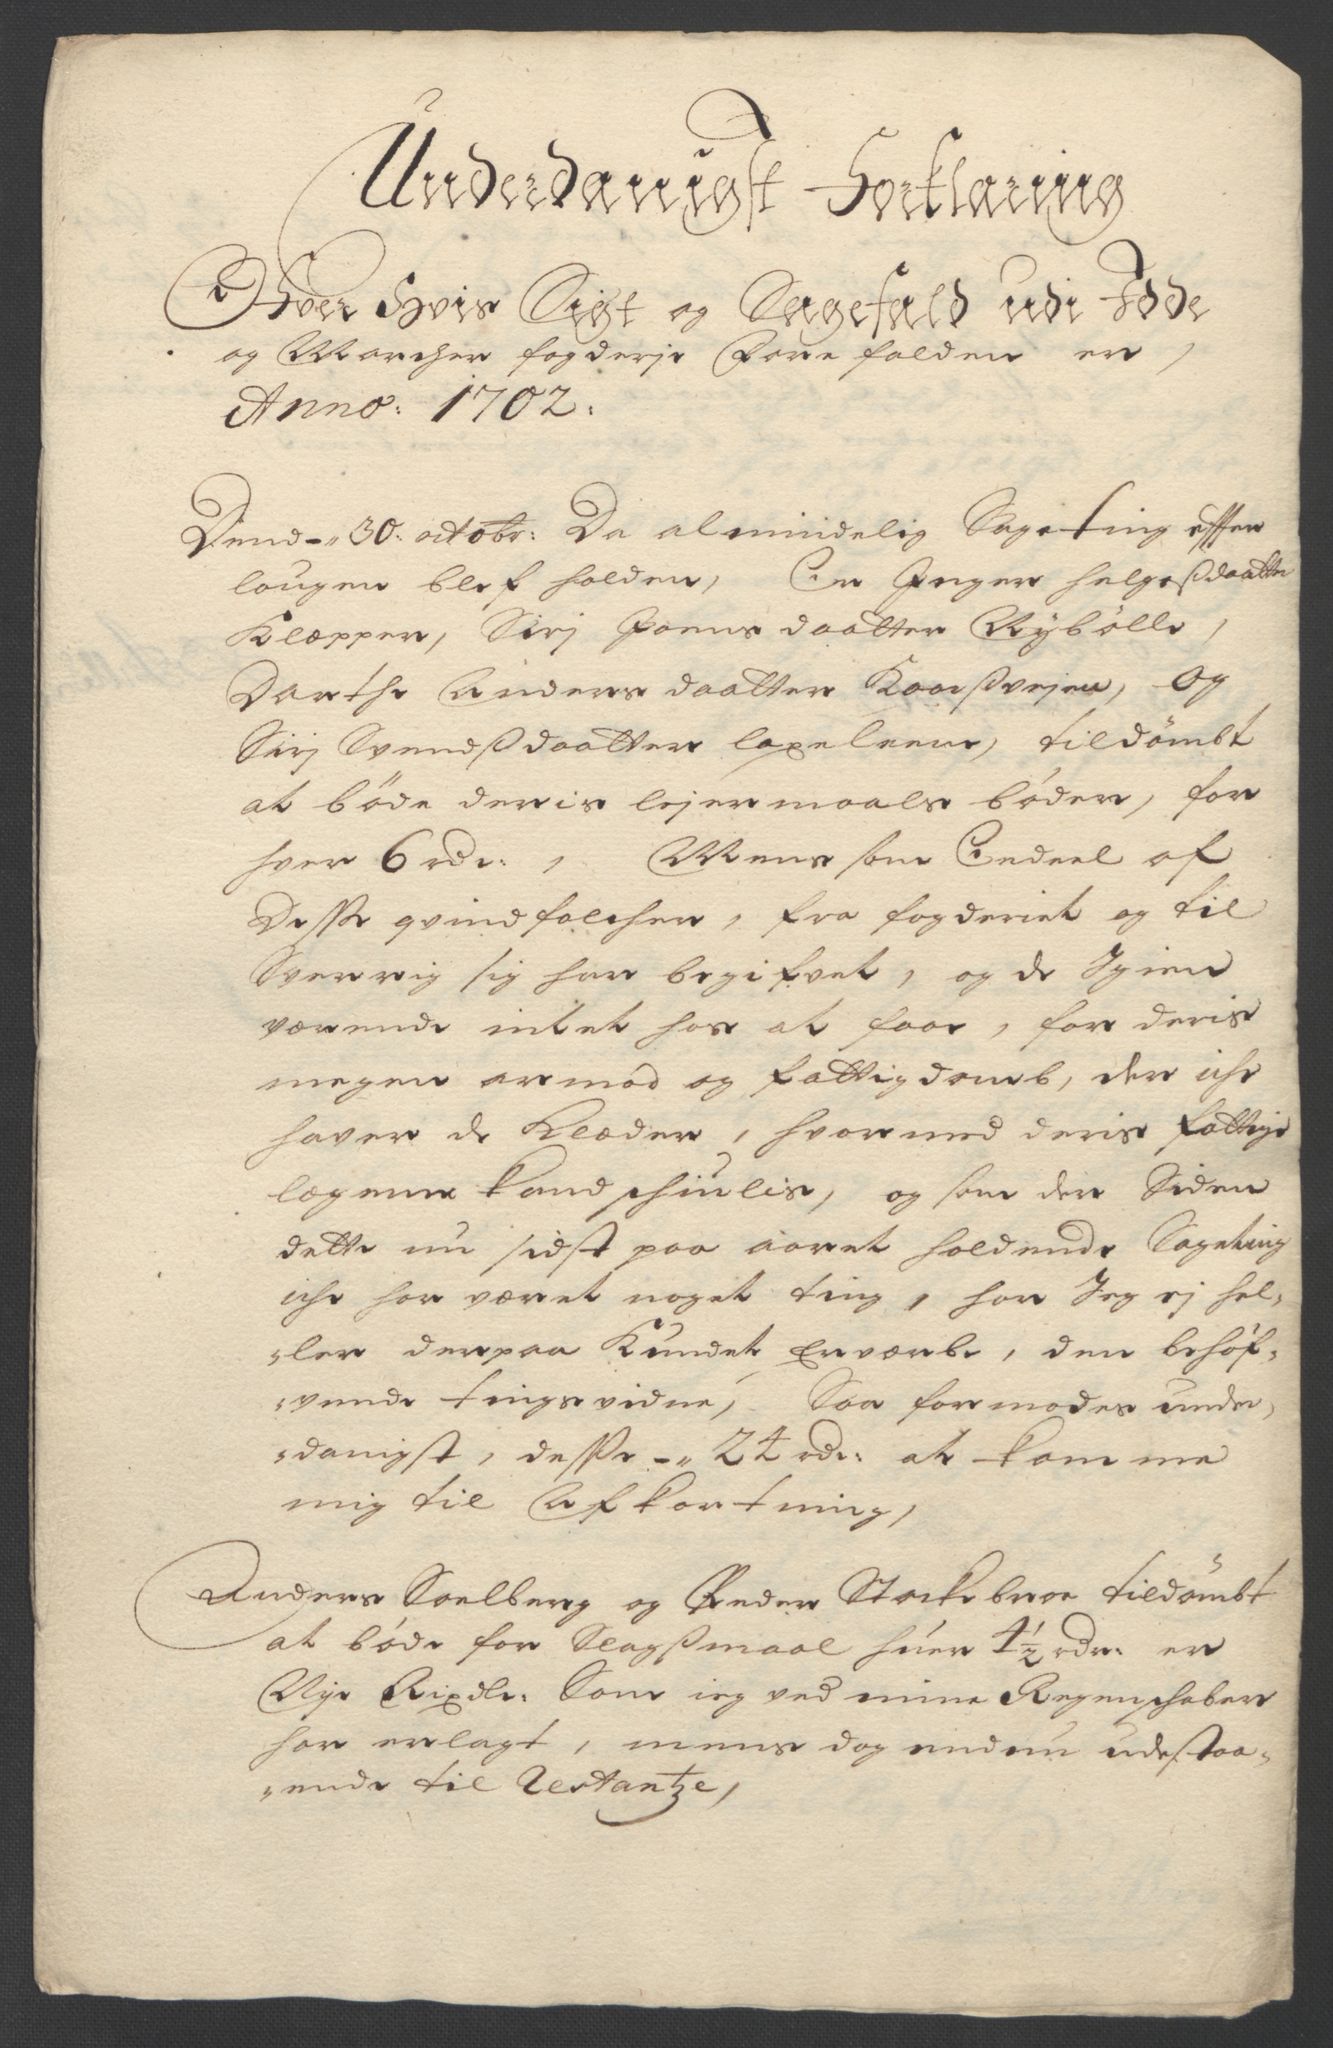 Underdanigst Forklaring
Ofver Hvis Sigt og Sagefald udi Idde
og Marcher fogderje Forefalden er,
Anno: 1702.
Dend -" 30. octobr: Da almindelig Sageting effter
lougen blef holden, Er Inger helgeßdaatter
Klepper, Sirj Joensdaatter Nÿbölle,
Dorthe Andersdaatter Kaarßvejen, og
Sirj Svendßdaatter laxeleene, tildömbt
at böde deris lejermaals böder, for
hver 6 rdr: , Mens som Endeel af
Desse qvindfolcher, fra fogderiet og til
Sverrig sig har begifvet, og de Igien
værende intet hos at faae, for deris
megen armod og fattigdomb, der iche
haver de Klæder, hvormed deris fattige
legeme kand schiulis, og som der Siden
dette nu sidst paa aaret holdende Sageting
iche har været noget ting, har Jeg ej hel-
-ler derpaa Kundet Erværbe, den behöf-
-vende tingsvidne, Saa formodes under-
-danigst, desse -" 24 rdr: at komme
mig til Afkortning,
Anders Soelberg og Peder Stockebroe tildömbt
at böde for Slagßmaal huer 4½ rdr: er
Nye Rixdlr: Som ieg ved mine Regenschaber
har erlagt, mens dog endnu udestaa-
-ende til Restantze,